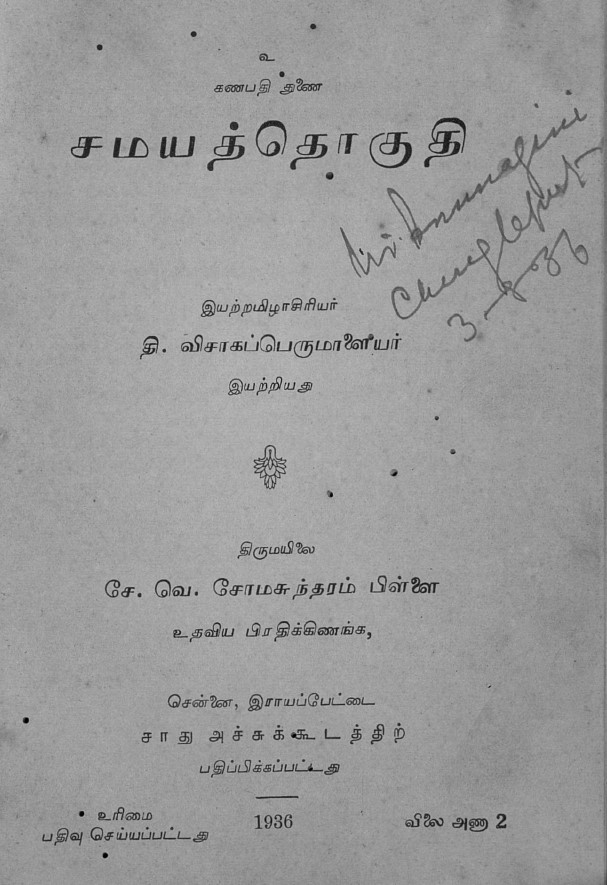 உ
கணபதி துணை
சமயத்தொகுதி
Chingleput
3-8-36
இயற்றமிழாசிரியர்
தி. விசாகப்பெருமாளையர்
இயற்றியது
திருமயிலை
சே. வெ. சோமசுந்தரம் பிள்ளை
உதவிய பிரதிக்கிணங்க,
சென்னை, இராயப்பேட்டை
சாது அச்சுக்கூடத்திற்
பதிப்பிக்கப்பட்டது
உரிமை
பதிவு செய்யப்பட்டது
1936
விலை அணா 2